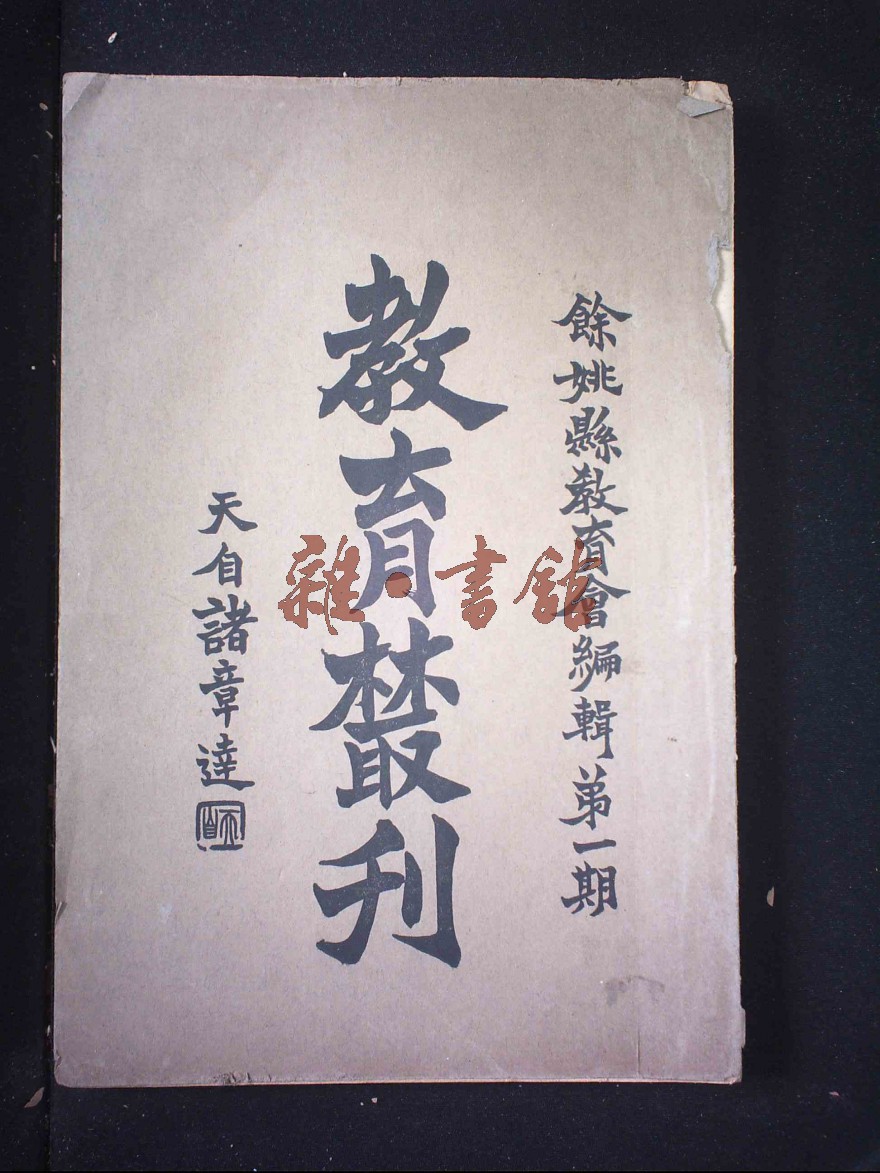 餘姚縣敎育會編輯第一期
敎育叢刊
天自諸章達
雜·書館